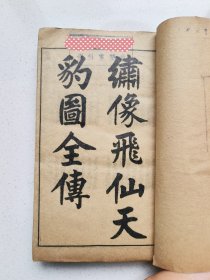 繡像飛仙天
豹圖全傳